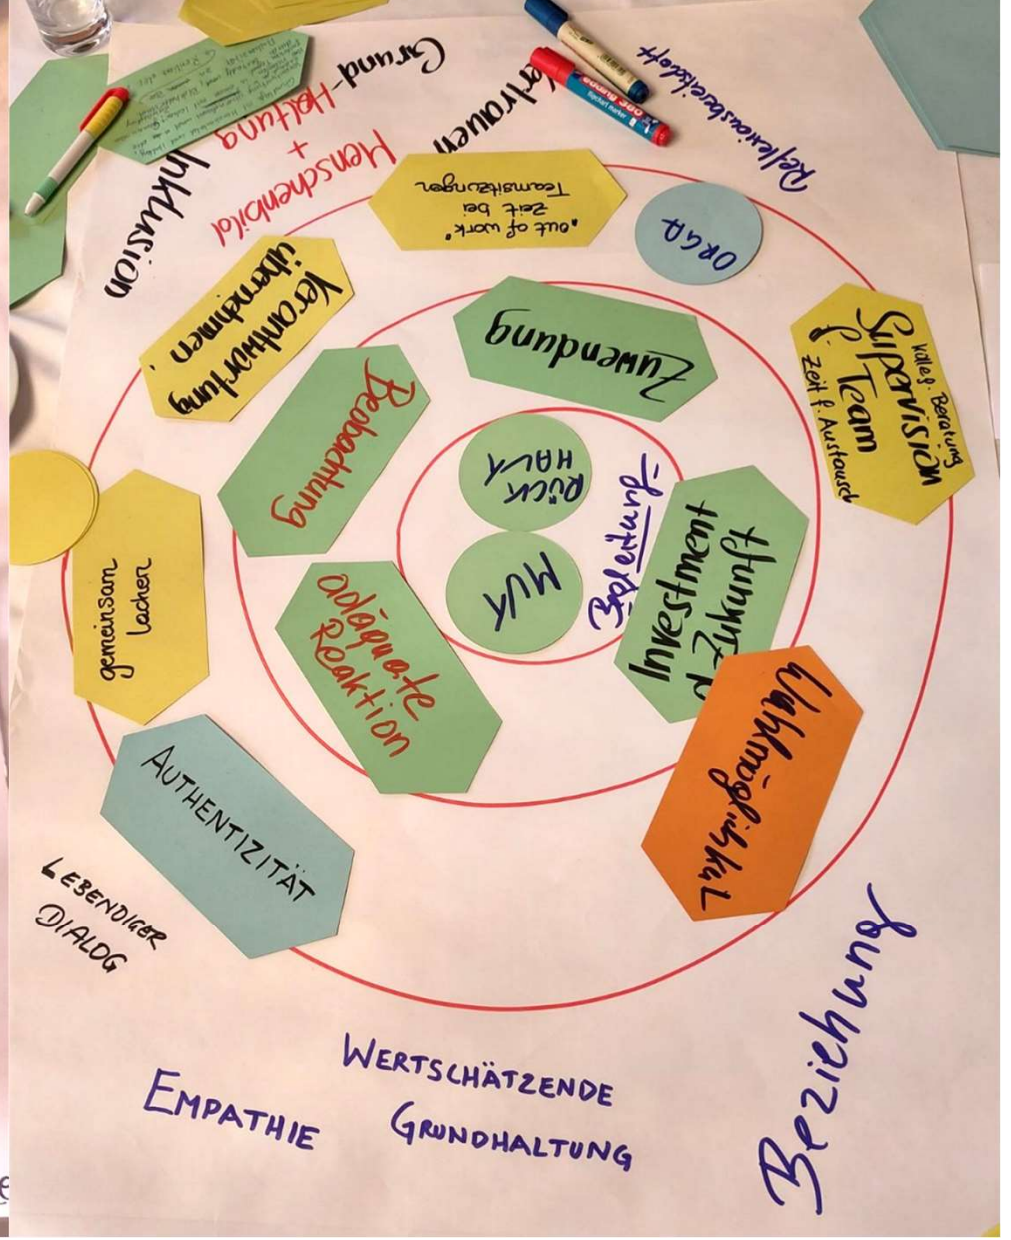 Grund-
Haltung
+
Menschenbild
Inklusion
Reflexionsbereitschaft
"out of work"
Zeit bei
Teamsitzungen
ORGA
Verantwortung
übernehmen
Zuwendung
Supervision
Kolleg. Beratung
f. Team
Zeit f. Austausch
Beobachtung
RÜCK
HALT
MUT
Begleitung
Investment
Zukunft
gemeinsam
lachen
adäquate
Reaktion
Wahlmöglichkeit
AUTHENTIZITÄT
LEBENDIGER
DIALOG
Beziehung
WERTSCHÄTZENDE
GRUNDHALTUNG
EMPATHIE